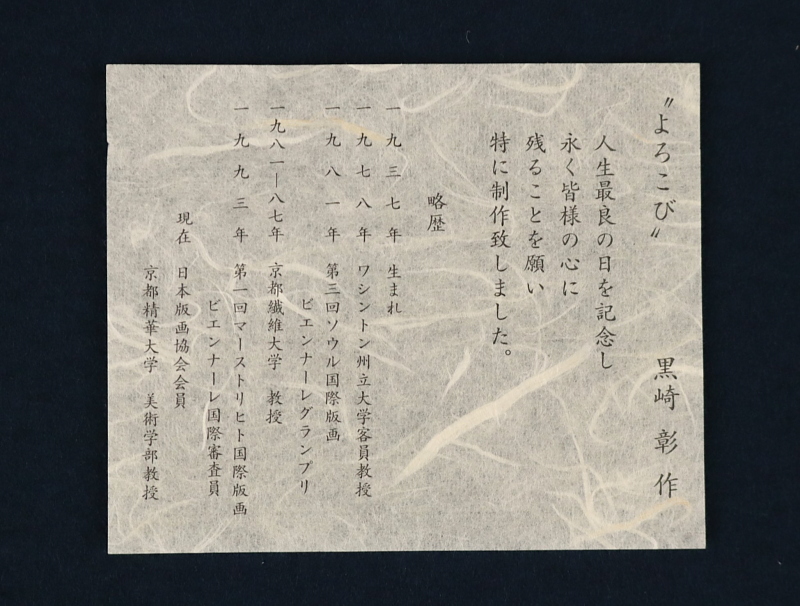 〝よろこび〟 黒崎 彰 作
人生最良の日を記念し
永く皆様の心に
残ることを願い
特に制作致しました。
略歴
一九三七年 生まれ
一九七八年 ワシントン州立大学客員教授
一九八一年 第三回ソウル国際版画
ビエンナーレグランプリ
一九八一―八七年 京都繊維大学 教授
一九九三年 第一回マーストリヒト国際版画
ビエンナーレ国際審査員
現在 日本版画協会会員
京都精華大学 美術学部教授